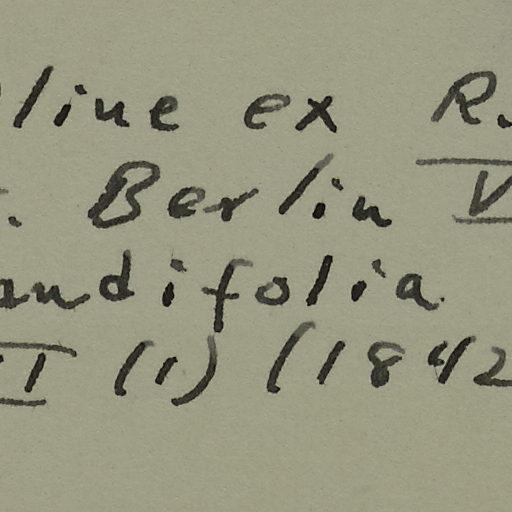 line ex R.
. Berlin V
andifolia
II (1) (1842